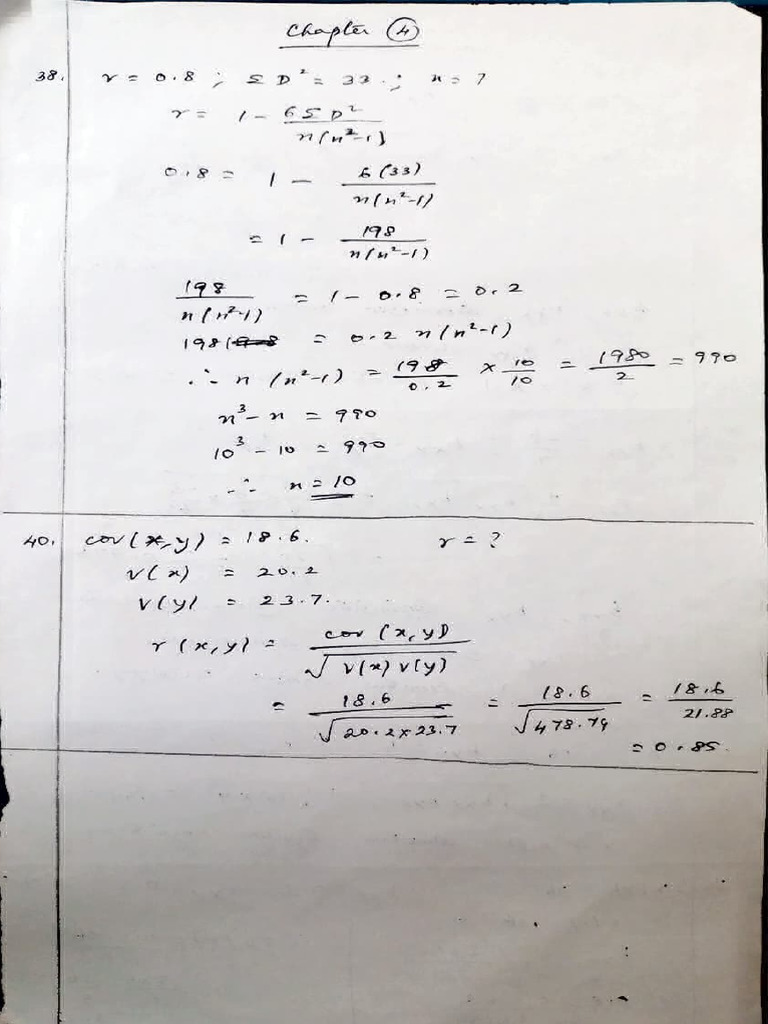 Chapter ④
38. r = 0.8 ; ΣD² = 33 ; n = ?
r = 1 - 6ΣD² / n(n²-1)
0.8 = 1 - 6(33) / n(n²-1)
= 1 - 198 / n(n²-1)
198 / n(n²-1) = 1 - 0.8 = 0.2
198 = 0.2 n(n²-1)
∴ n(n²-1) = 198 / 0.2 × 10 / 10 = 1980 / 2 = 990
n³ - n = 990
10³ - 10 = 990
∴ n = 10
40. cov(x,y) = 18.6. r = ?
v(x) = 20.2
v(y) = 23.7.
r(x,y) = cov(x,y) / √v(x) v(y)
= 18.6 / √20.2×23.7 = 18.6 / √478.74 = 18.6 / 21.88
= 0.85.